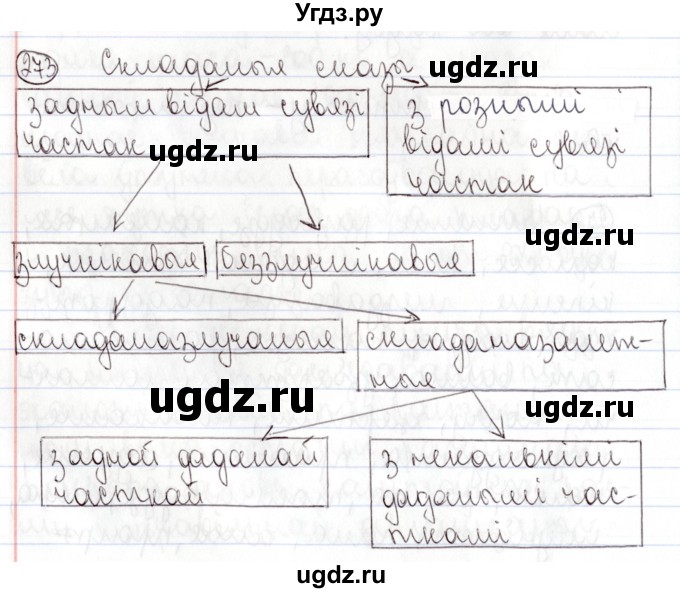 Угдз.ру
273 Складаныя сказы
ugdz.ru
з адным відам сувязі
частак
ugdz.ru
з рознымі
відамі сувязі
частак
ugdz.ru
злучнікавыя
бяззлучнікавыя
складаназлучаныя
складаназалеж-
ныя
ugdz.ru
ugdz.ru
з адной даданай
часткай
з некалькімі
даданымі час-
ткамі
ugdz.ru